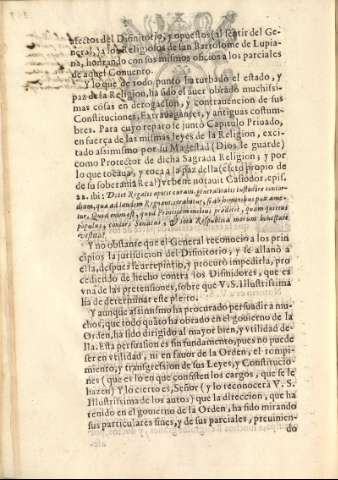 afectos del Difinitorio, y opuestos (al sentir del Ge-
neral,) a los Religiosos de san Bartolome de Lupia-
na, honrando con sus mismos oficios a los parciales
de aquel Conuento.
Y lo que de todo punto ha turbado el estado, y
paz de la Religion, ha sido el auer obrado muchissi-
mas cosas en derogacion, y contrauencion de sus
Constituciones, Extrauagantes, y antiguas costum-
bres. Para cuyo reparo se juntò Capitulo Priuado,
en fuerça de las mismas leyes de la Religion, exci-
tado assimismo por su Magestad (Dios le guarde)
como Protector de dicha Sagrada Religion; y por
lo que toca à la paz della (efecto propio de
de su soberania Real) vt bene notauit Casiodor. epis.
22. ibi: Regales apices curam generalitatis custodire concor-
diam, quia ad laudem Regnantis trahitur, si ab hominibus pax ame-
tur. Quid enim est, quod Principem melius prædicet, quam quietus
populus, concors Senatus,
vestita?
Y no obstante que el General reconociò a los prin
cipios la jurisdicion del Difinitorio, y se allanò a
ella, despues se arrepintio, y procurò impedirla, pro
cediendo de hecho contra los Difinidores, que es
vna de las pretensiones, sobre que V. S. Illustrissima
ha de determinar este pleito.
Y aunque assimismo ha procurado persuadir a mu-
chos, que todo quãto ha obrado en el gouierno de la
Orden, ha sido dirigido al mayor bien, y vtilidad de-
lla. Esta persuasion es sin fundamento, pues no puede
ser en vtilidad, ni en fauor de la Orden, el rompi-
miento, y transgression de sus Leyes, y Constitucio-
nes (que es lo en que consisten los cargos, que se le
hazen) Y lo cierto es, Señor (y lo reconocerà V. S.
Illustrissima de los autos) que la direccion, que ha
tenido en el gouierno de la Orden, ha sido mirando
sus particulares fines, y de sus parciales, preuinien-
do